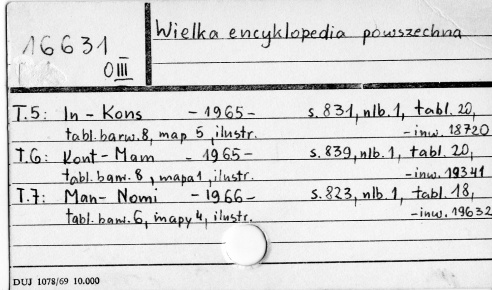 16631
O III
Wielka encyklopedia powszechna
T.5: In - Kons - 1965 - s. 831, nlb. 1, tabl. 20,
tabl. barw. 8, map 5, ilustr. - inw. 18720
T.6: Kont - Mam - 1965 - s. 839, nlb. 1, tabl. 20,
tabl. barw. 8, mapa 1, ilustr. - inw. 19341
T.7: Man - Nomi - 1966 - s. 823, nlb. 1, tabl. 18,
tabl. barw. 6, mapy 4, ilustr. - inw. 19632
DUJ 1078/69 10.000